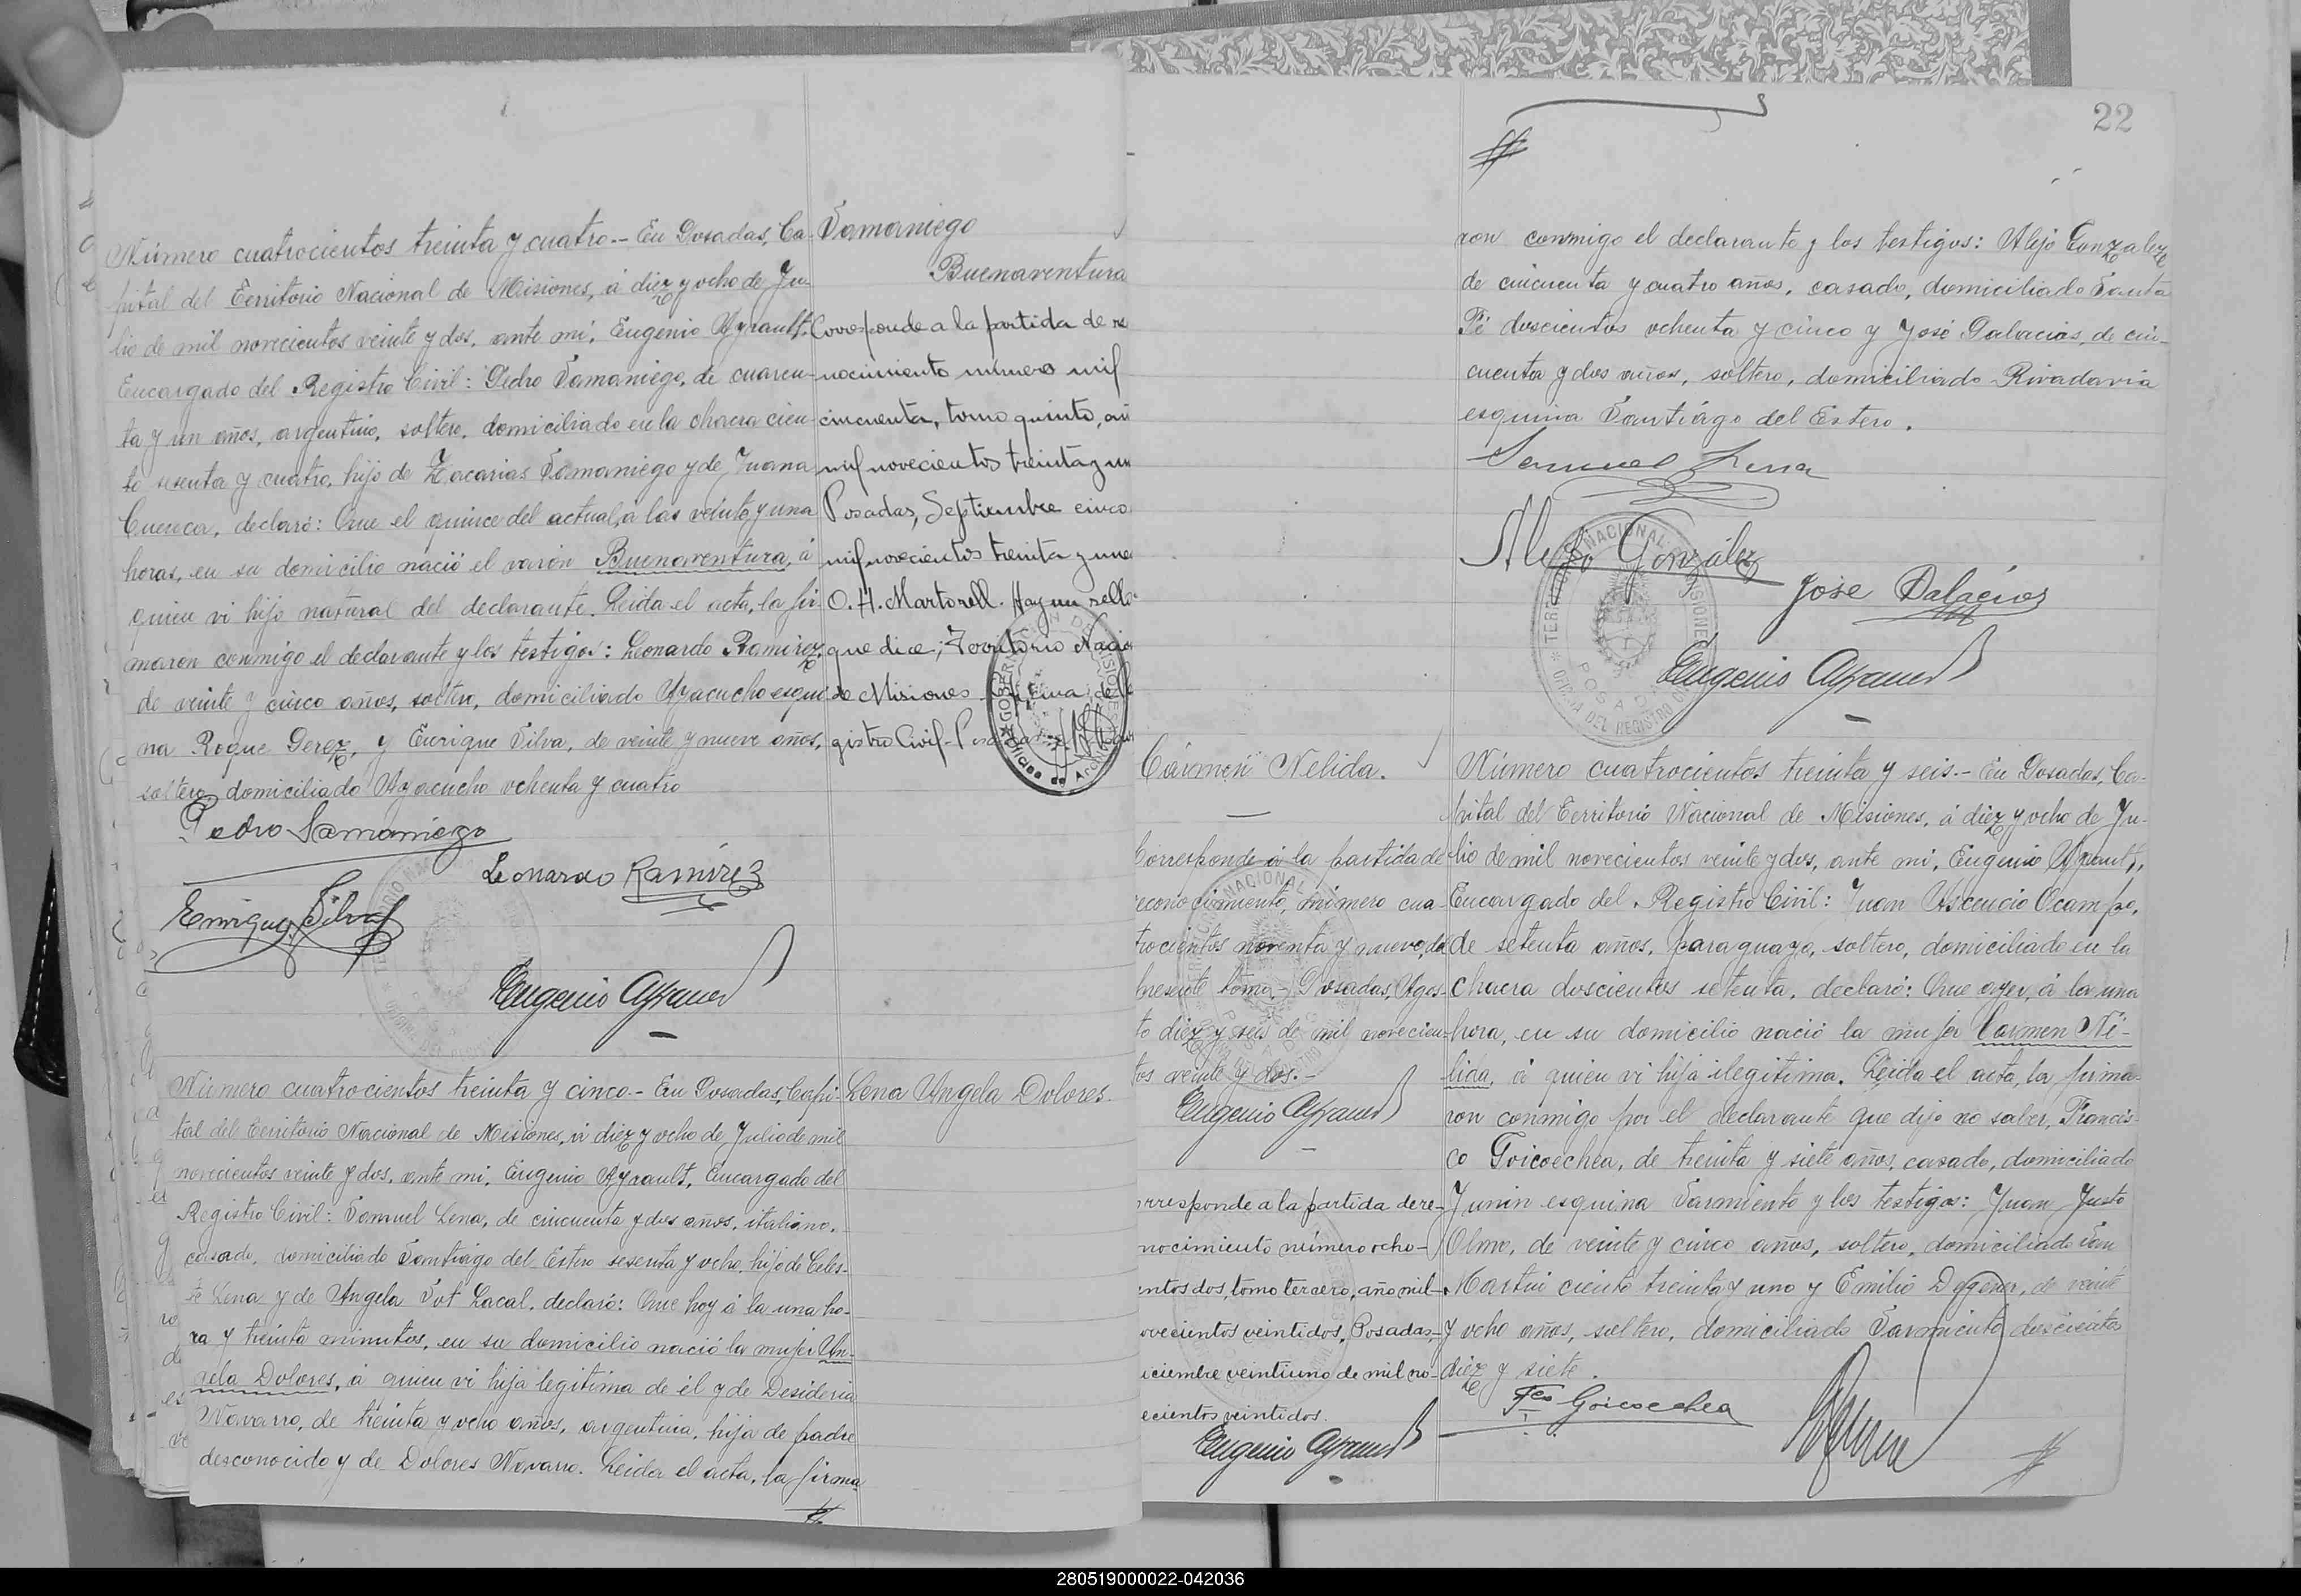 Número cuatrocientos treinta y cuatro.- En Posadas, Ca-
pital del Territorio Nacional de Misiones, á diez y ocho de Ju-
lio de mil novecientos veinte y dos, ante mi, Eugenio Ayrault,
Encargado del Registro Civil: Pedro Samaniego, de cuaren-
ta y un años, argentino, soltero, domiciliado en la chacra cien-
to sesenta y cuatro, hijo de Zacarias Samaniego y de Juana
Cuenca, declaró: Que el quince del actual, á las veinte y una
horas, en su domicilio nació el varón Buenaventura, á
quien vi hijo natural del declarante. Leida el acta, la fir
maron conmigo el declarante y los testigos: Leonardo Ramirez,
de veinte y cinco años, soltero, domiciliado Ayacucho esqui
na Roque Perez, y Enrique Silva, de veinte y nueve años,
soltero, domiciliado Ayacucho ochenta y cuatro
Pedro Samaniego
Leonardo Ramírez
Enrique Silva
Eugenio Ayrault
Samaniego
Buenaventura
Corresponde a la partida de re
nocimiento número mil
cincuenta, tomo quinto, añ
mil novecientos treinta y un
Posadas, Septiembre cinco
mil novecientos treinta y uno
O. H. Martorell. Hay un sello
que dice; Territorio Nacio
de Misiones - Oficina del
gistro Civil - Posadas
Número cuatrocientos treinta y cinco.- En Posadas, Capi-
tal del Territorio Nacional de Misiones, á diez y ocho de Julio de mil
novecientos veinte y dos, ante mi, Eugenio Ayrault, Encargado del
Registro Civil: Samuel Lena, de cincuenta y dos años, italiano,
casado, domiciliado Santiago del Estero sesenta y ocho, hijo de Celes-
te Lena y de Angela Sot Lacal, declaró: Que hoy á la una ho-
ra y treinta minutos, en su domicilio nació la mujer An-
gela Dolores, á quien vi hija legitima de él y de Desideria
Navarro, de treinta y ocho años, argentina, hija de padre
desconocido y de Dolores Navarro. Leida el acta, la firma
Lena Angela Dolores.
22
ron conmigo el declarante y los testigos: Alejo Gonzalez,
de cincuenta y cuatro años, casado, domiciliado Santa
Fé doscientos ochenta y cinco y José Palacios, de cin-
cuenta y dos años, soltero, domiciliado Rivadavia
esquina Santiago del Estero.
Samuel Lena
Alejo González
José Palacios
Eugenio Ayrault
TERRITORIO NACIONAL MISIONES
POSADAS
OFICINA DEL REGISTRO CIVIL
Cármen Nelida.
Corresponde á la partida de
reconocimiento, número cua-
trocientos noventa y nueve, del
presente tomo.- Posadas, Agos-
to diez y seis de mil novecien-
tos veinte y dos.-
Eugenio Ayrault
orresponde a la partida de re-
nocimiento número ocho-
entos dos, tomo tercero, año mil-
ovecientos veintidos, Posadas,-
iciembre veintiuno de mil no-
ecientos veintidos.
Eugenio Ayrault
Número cuatrocientos treinta y seis.- En Posadas, Ca-
pital del Territorio Nacional de Misiones, á diez y ocho de Ju-
lio de mil novecientos veinte y dos, ante mi, Eugenio Ayrault,
Encargado del Registro Civil: Juan Ascencio Ocampo,
de setenta años, paraguayo, soltero, domiciliado en la
chacra doscientos setenta, declaró: Que ayer, á la una
hora, en su domicilio nació la mujer Carmen Né-
lida, á quien vi hija ilegitima. Leida el acta, la firma-
ron conmigo por el declarante que dijo no saber, Francis-
co Goicoechea, de treinta y siete años, casado, domiciliado
Junin esquina Sarmiento y los testigos: Juan Justo
Olmo, de veinte y cinco años, soltero, domiciliado San
Martin ciento treinta y uno y Emilio Degener, de veinte
y ocho años, soltero, domiciliado Sarmiento doscientos
diez y siete.
Fco Goicoechea
280519000022-042036